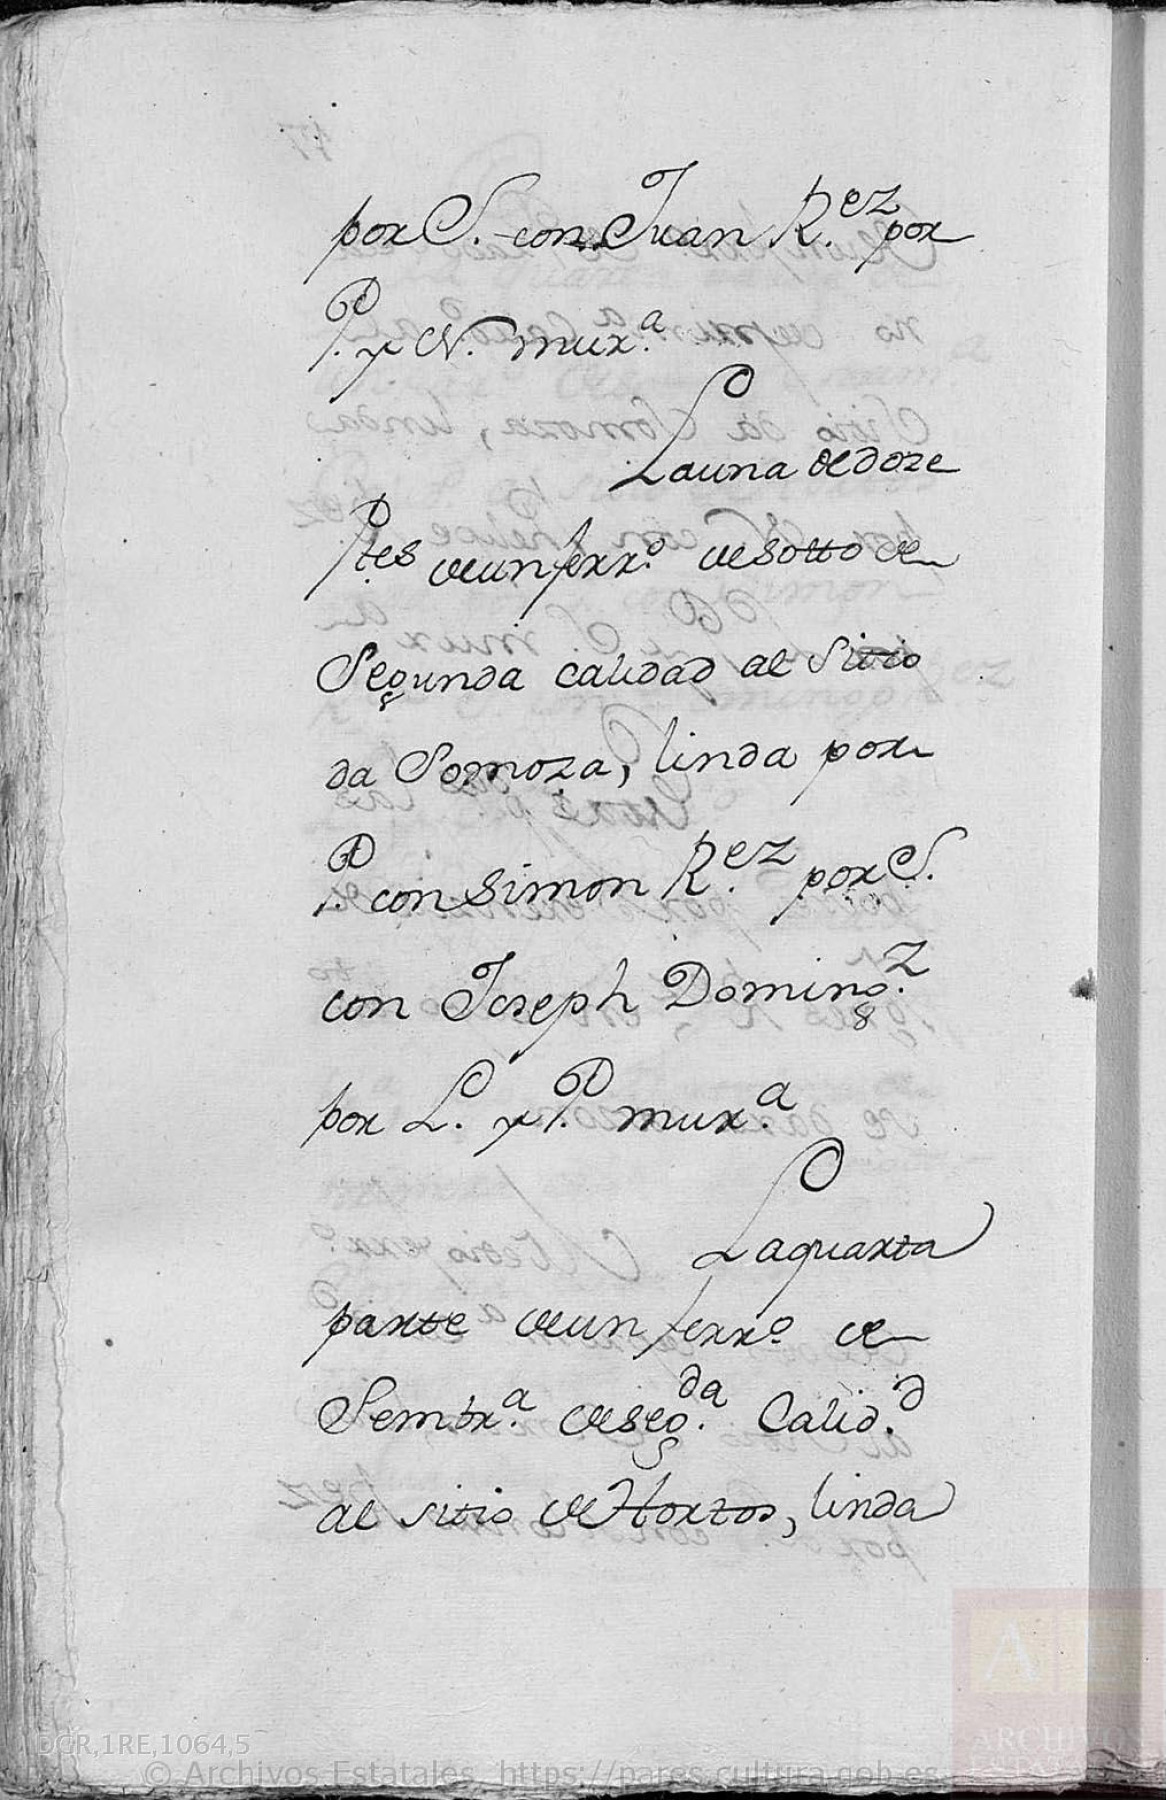 por S. con Juan R.ez por
P. y N. mur.a
La una de doze
Ptes de un ferr.o de sotto de
Segunda calidad al Sitio
da Somoza, linda por
P. con Simon R.ez por S.
con Joseph Doming.z
por L. y P. mur.a
La quarta
partte de un ferr.o de
Sembr.a de seg.da Calid.d
al sitio de Hortos, linda
DGR,1RE,1064,5
© Archivos Estatales, https://pares.cultura.gob.es
AE
ARCHIVOS
ESTATALES